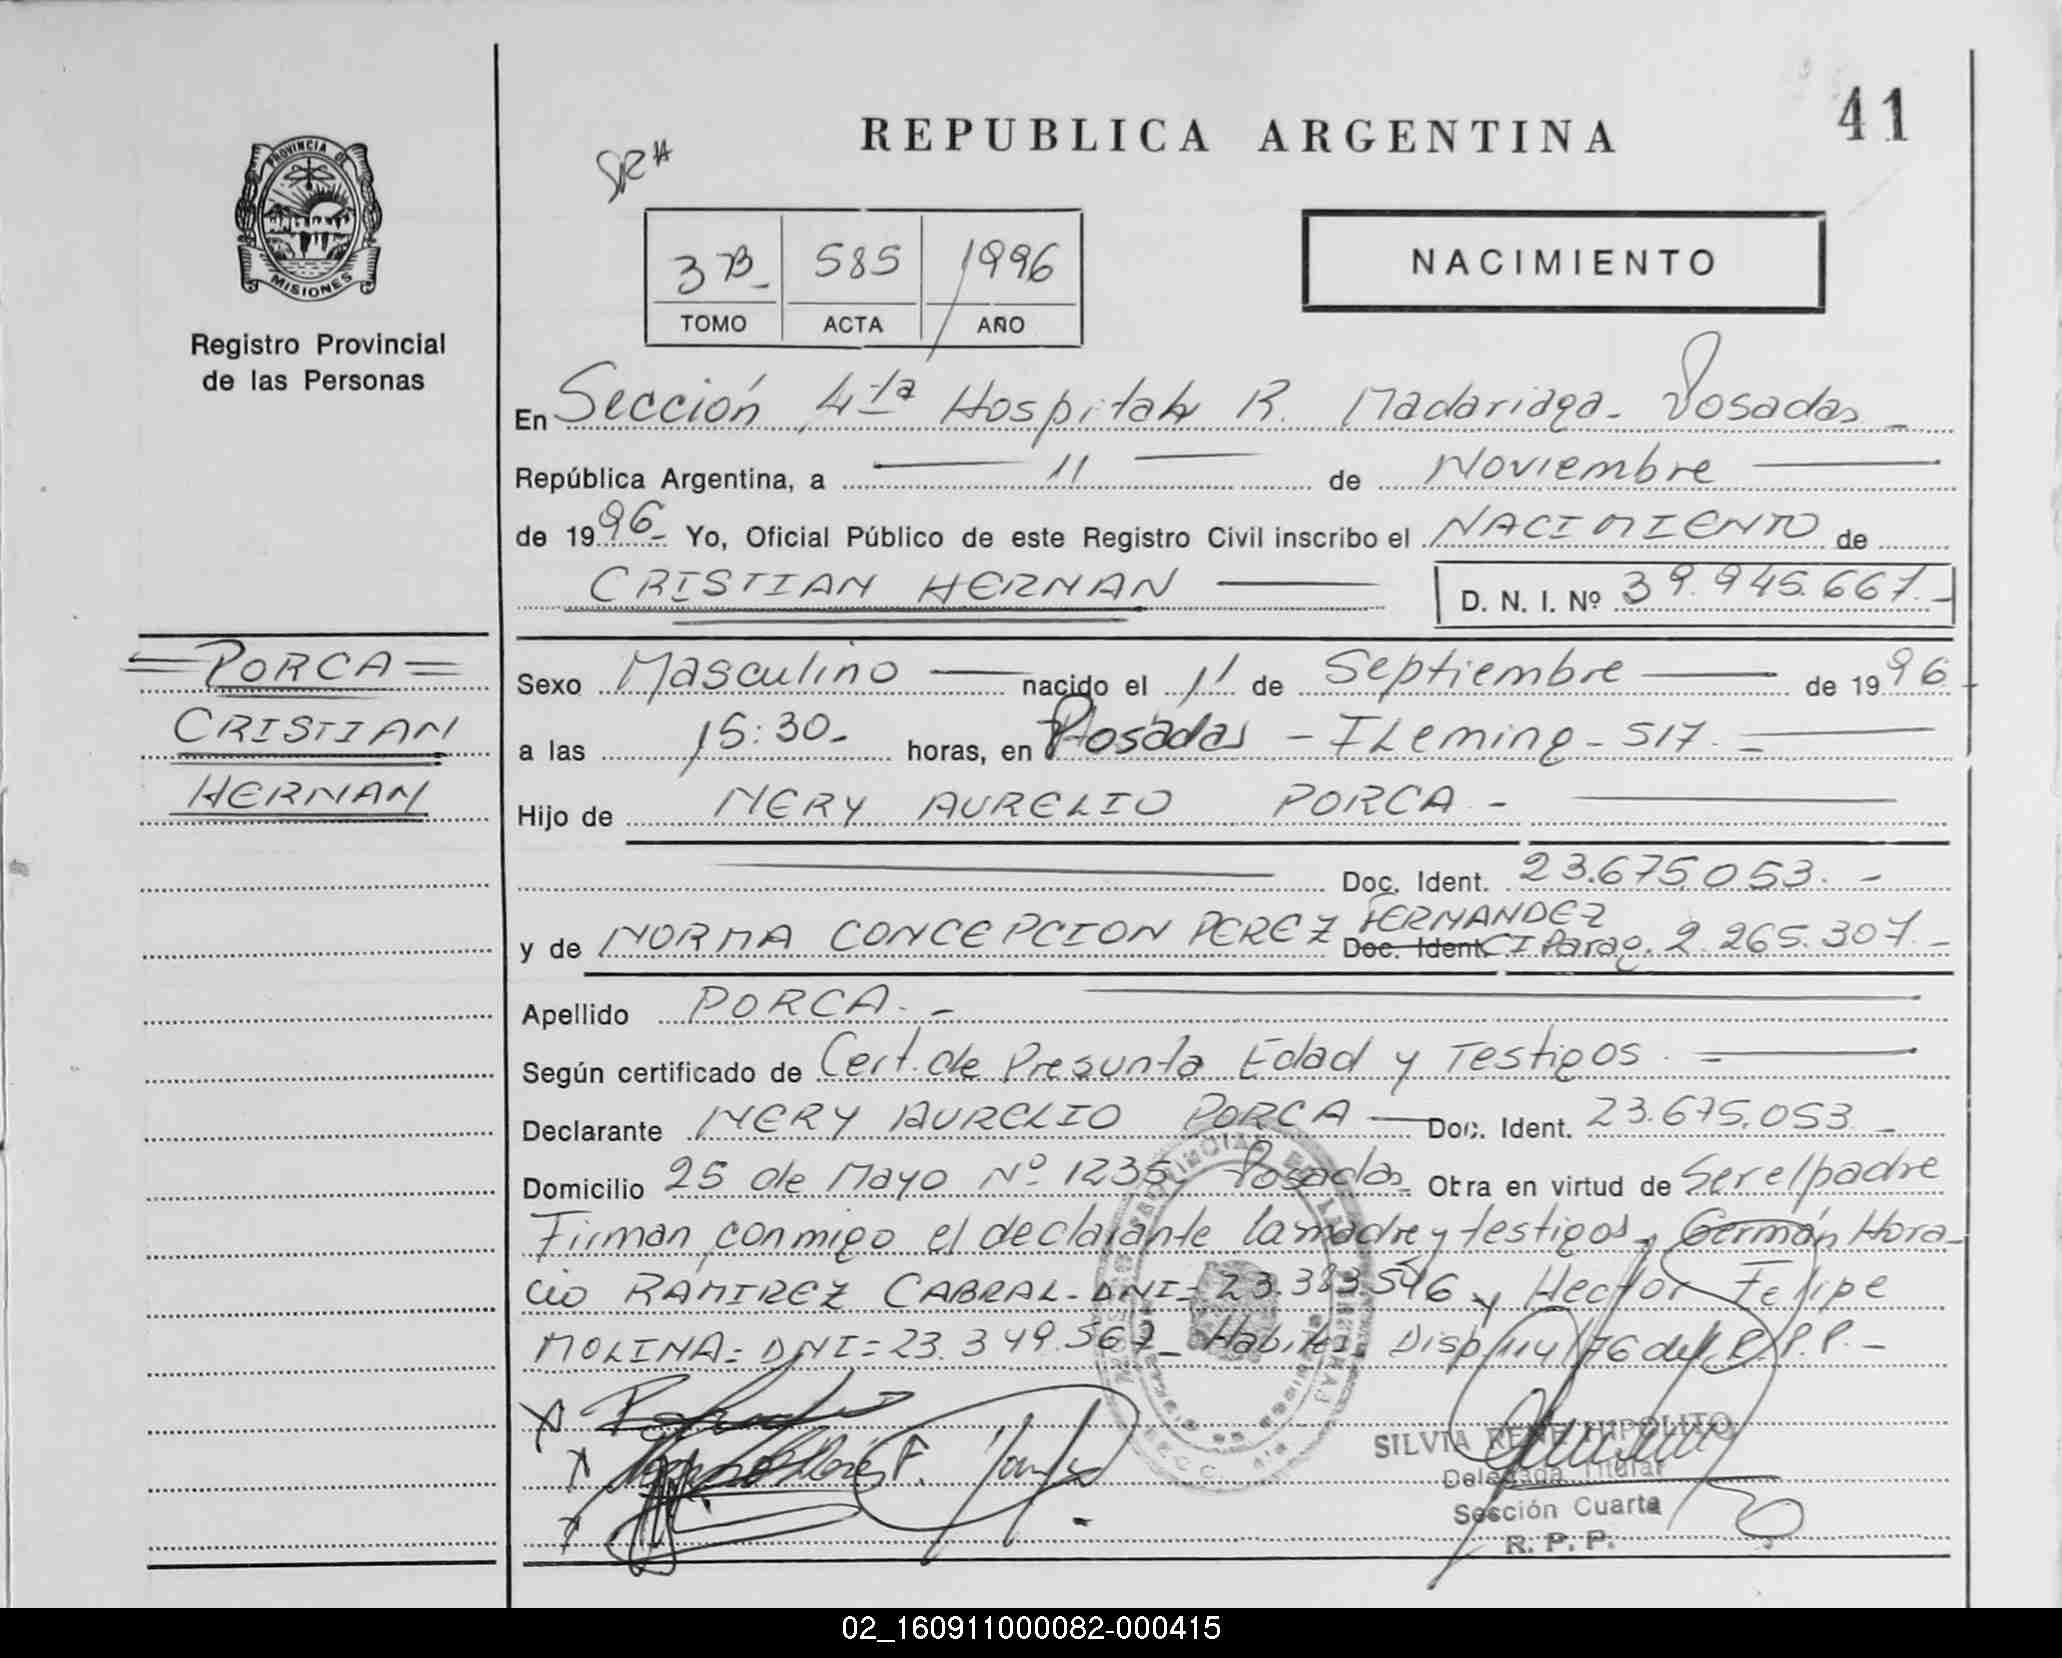 41
REPUBLICA ARGENTINA
PROVINCIA DE
MISIONES
Registro Provincial
de las Personas
3 B - 585 1996
TOMO ACTA AÑO
NACIMIENTO
En Sección 4ta Hospital R. Madariaga - Posadas -
República Argentina, a 11 de Noviembre
de 1996 - Yo, Oficial Público de este Registro Civil inscribo el NACIMIENTO de
CRISTIAN HERNAN D. N. I. Nº 39.945.667.-
=PORCA=
CRISTIAN
HERNAN
Sexo Masculino nacido el 11 de Septiembre de 1996
a las 15:30.- horas, en Posadas - FLeming - 517. -
Hijo de NERY AURELIO PORCA -
Doc. Ident. 23.675.053. -
y de NORMA CONCEPCION PEREZ FERNANDEZ
Doc. Ident. CI Parag. 2.265.307.-
Apellido PORCA. -
Según certificado de Cert. de Presunta Edad y Testigos. -
Declarante NERY AURELIO PORCA Doc. Ident. 23.675.053 -
Domicilio 25 de Mayo Nº 1235 - Posadas - Obra en virtud de Ser el padre
Firman conmigo el declarante la madre y testigos, Germán Hora-
cio RAMIREZ CABRAL - DNI = 23.383.546 y Hector Felipe
MOLINA = DNI = 23.349.567 - Habilit. Disp. 114/76 del R.P.P. -
SILVIA RENE HIPOLITO
Delegada Titular
Sección Cuarta
R. P. P.
02_160911000082-000415